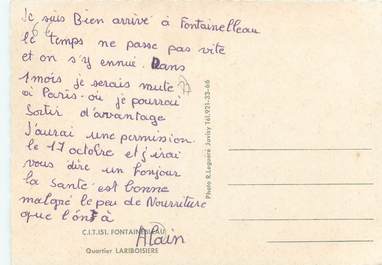 Je suis Bien arrivé à Fontainelleau
le temps ne passe pas vite
et on s'y ennui. Dans
1 mois je serais muté
à Paris. où je pourrai
Sortir d'avantage
J'aurai une permission
le 17 octobre et j'irai
vous dire un bonjour
la santé est bonne
malgré le peu de Nourriture
que l'on à
Alain
C.I.T.151. FONTAINEBLEAU
Quartier LARIBOISIERE
Photo R.Leguere Juvisy Tél.921-33-66